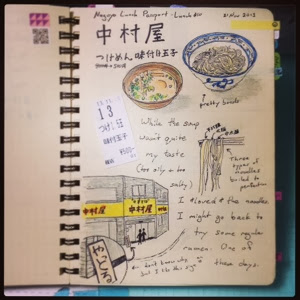 Nagoya Lunch Passport - Lunch
21 Nov 2013
中村屋
つけめん 味付玉子
pretty bowls
13
つけ玉
味付玉子
While the soup
wasn't quite
my taste
(too oily & too
salty)
I loved the noodles.
I might go back to
try some regular
ramen. One of
these days.
Three
types of
noodles
boiled to
perfection
中村屋
中村屋
don't know why
but I like this sign